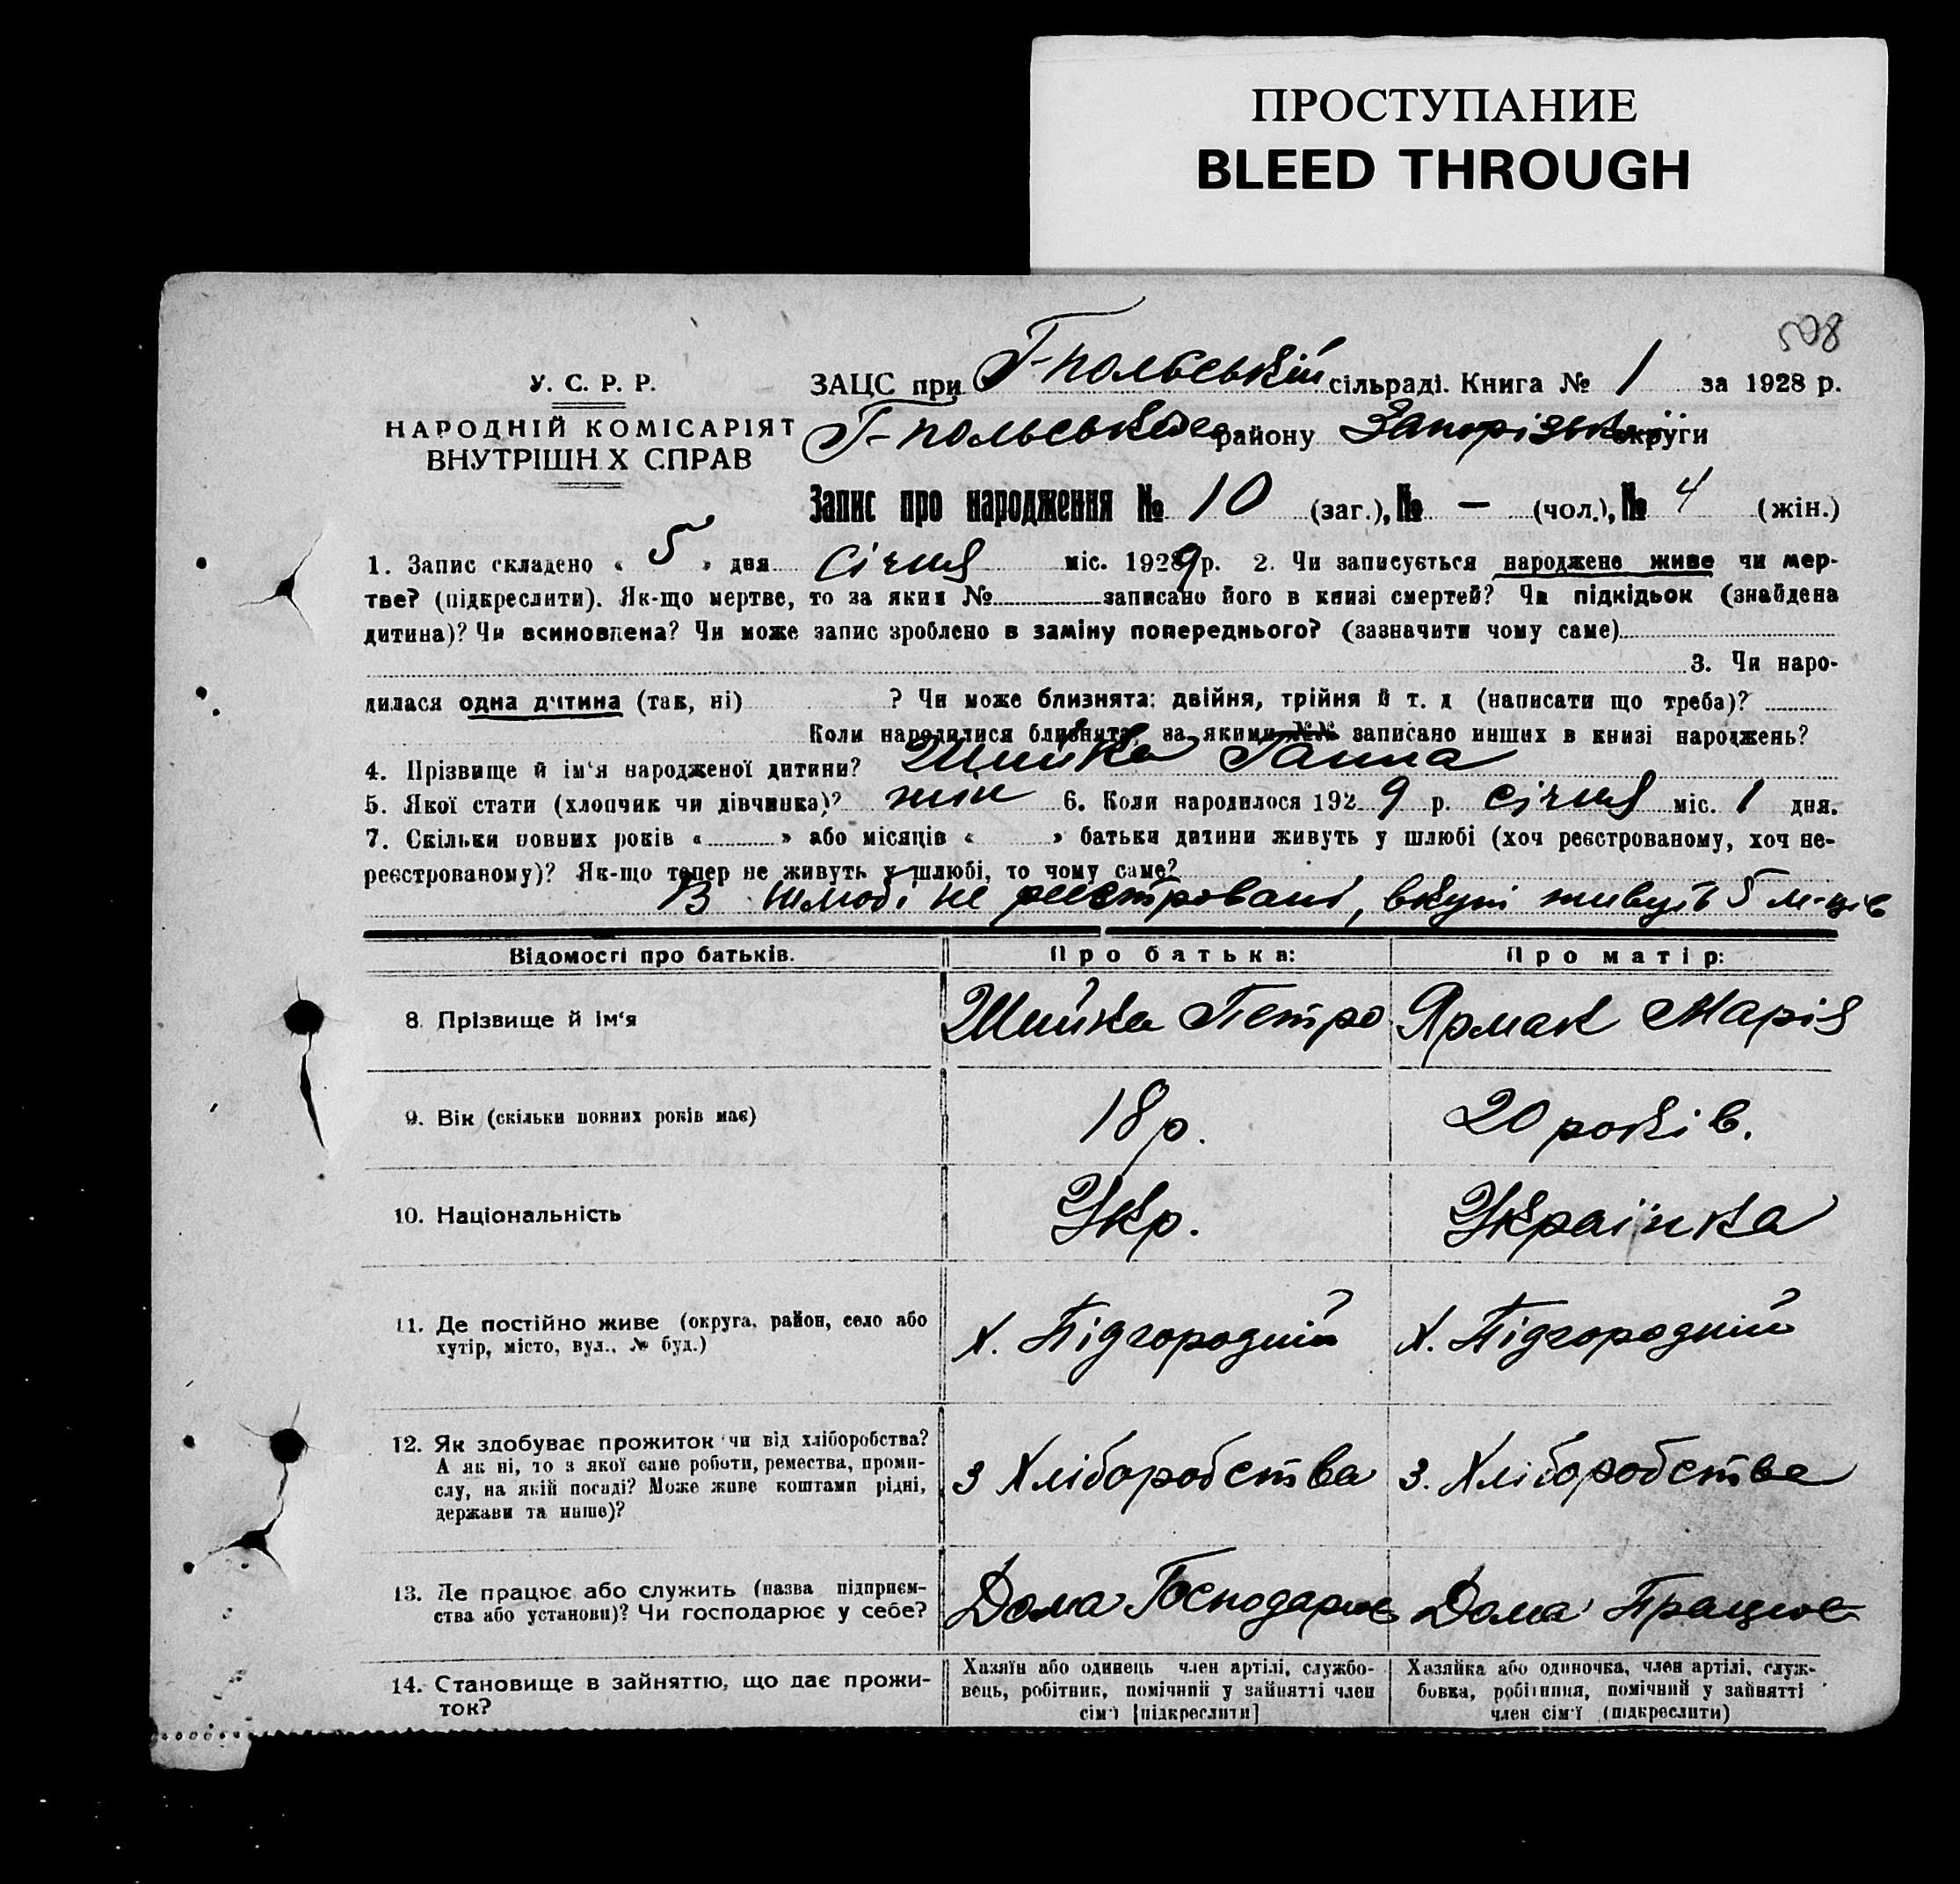 ПРОСТУПАНИЕ
BLEED THROUGH
508
У. С. Р. Р.
НАРОДНІЙ КОМІСАРІЯТ
ВНУТРІШН Х СПРАВ
ЗАЦС при Г-польській сільраді. Книга № 1 за 1928 р.
Г-польського району Запорізької округи
Запис про народження № 10 (заг.), № — (чол.), № 4 (жін.)
1. Запис складено « 5 » дня січня міс. 1929 р. 2. Чи записується народжене живе чи мер-
тве? (підкреслити). Як-що мертве, то за яким № записано його в книзі смертей? Чи підкідьок (знайдена
дитина)? Чи всиновлена? Чи може запис зроблено в заміну попереднього? (зазначити чому саме)
3. Чи наро-
дилася одна дитина (так, ні) ? Чи може близнята: двійня, трійня й т. д (написати що треба)?
Коли народилися близнята, за якими №№ записано инших в книзі народжень?
4. Прізвище й ім'я народженої дитини? Шийка Ганна
5. Якої стати (хлопчик чи дівчинка)? жін 6. Коли народилося 192 9 р. січня міс. 1 дня.
7. Скільки повних років « » або місяців « » батьки дитини живуть у шлюбі (хоч реєстрованому, хоч не-
реєстрованому)? Як-що тепер не живуть у шлюбі, то чому саме?
В шлюбі не реєстровані, вкупі живуть 5 м-ців
Відомості про батьків. Про батька: Про матір:
8. Прізвище й ім'я Шийка Петро Ярмак Марія
9. Вік (скільки повних років має) 18 р. 20 років.
10. Національність Укр. Українка
11. Де постійно живе (округа, район, село або
хутір, місто, вул., № буд.) х. Підгородній х. Підгородній
12. Як здобуває прожиток чи від хліборобства?
А як ні, то з якої саме роботи, ремества, проми-
слу, на якій посаді? Може живе коштами рідні,
держави та инше)? з Хліборобства з. Хліборобства
13. Де працює або служить (назва підприєм-
ства або установи)? Чи господарює у себе? Дома Господарює Дома Працює
14. Становище в зайняттю, що дає прожи-
ток?
Хазяїн або одинець член артілі, службо-
вець, робітник, помічний у зайнятті член
сім'ї [підкреслити]
Хазяйка або одиночка, член артілі, служ-
бовка, робітниця, помічний у зайнятті
член сім'ї (підкреслити)